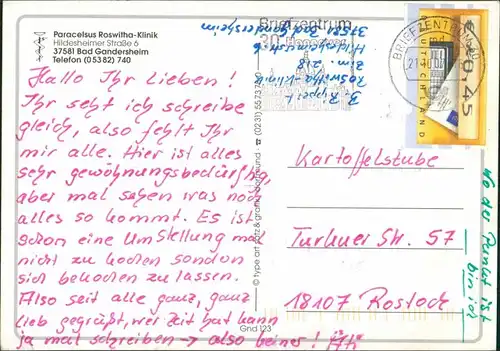 Paracelsus Roswitha-Klinik
Hildesheimer Straße 6
37581 Bad Gandersheim
Telefon (05382) 740
Hallo Ihr Lieben!
Ihr seht ich schreibe
gleich, also fehlt Ihr
mir alle. Hier ist alles
sehr gewöhnungsbedürftig,
aber mal sehen was noch
alles so kommt. Es ist
schon eine Umstellung mal
nicht zu kochen sondern
sich bekochen zu lassen.
Also seit alle ganz, ganz
lieb gegrüßt, wer Zeit hat kann
ja mal schreiben → also keiner!
© type art satz & grafik dortmund · ☎ (0231) 557374
Gnd 123
Briefzentrum
30 Hannover
Roswitha-Klinik
Zim 218
Hildesheimerstr. 6
37581 Bad Gandersheim
BRIEFZENTRUM 30
DEUTSCHLAND
€ 0,45
Kartoffelstube
Turkuer Str. 57
18107 Rostock
wo der Punkt ist
bin ich